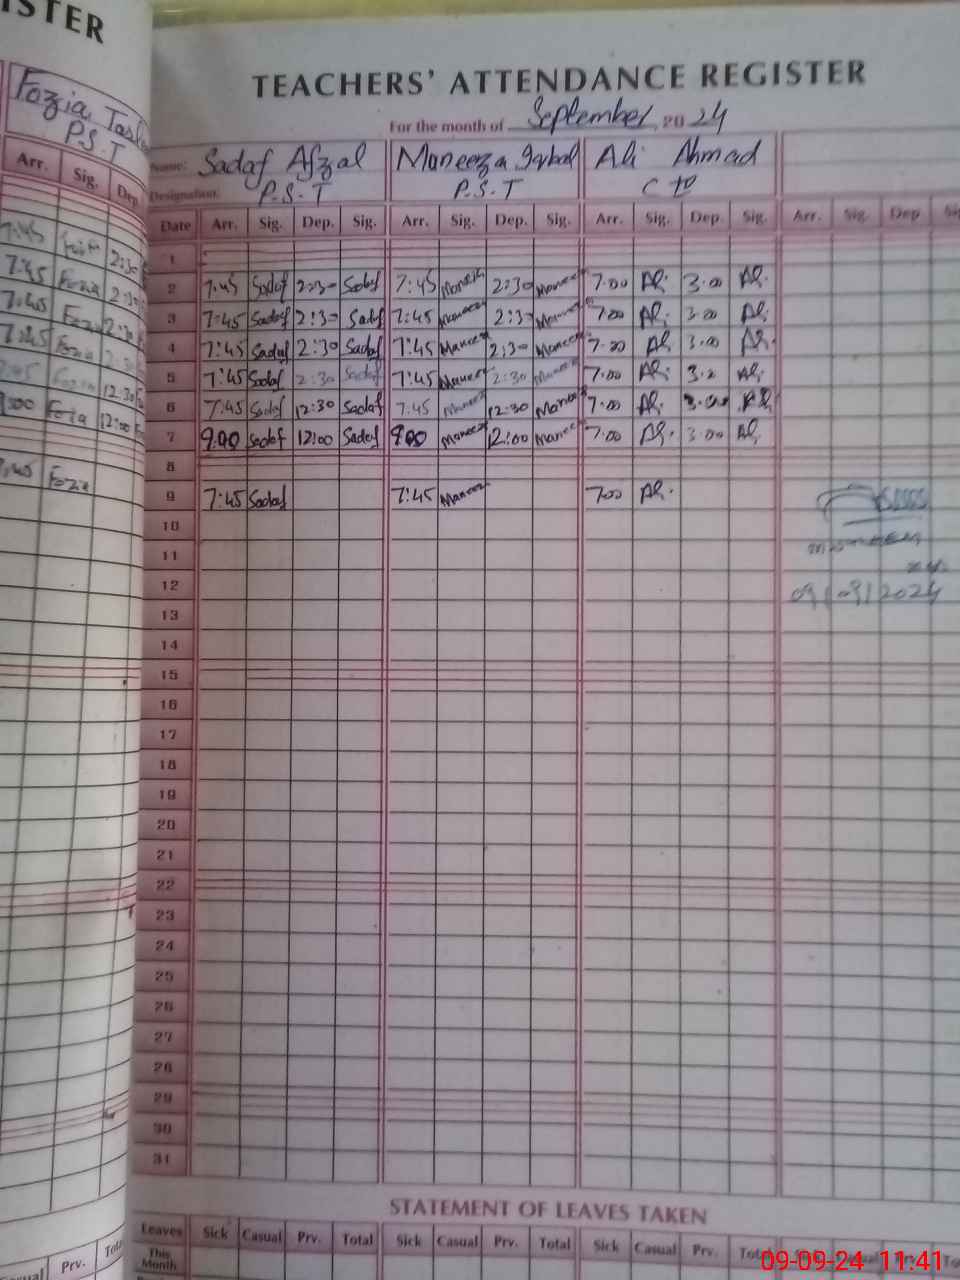 ISTER
Fozia
P.S.T
Arr. Sig. Dep.
7:45 2:30
7:45 Fozia 2:30
7:45 Fozia 2:30
7:45 Fozia 2:30
7:45 Fozia 12:30
9:00 Fozia 12:00
7:45 Fozia
Prv.
TEACHERS' ATTENDANCE REGISTER
For the month of September, 2024
Name: Sadaf Afzal Maneeza Iqbal Ali Ahmad
Designation: P.S.T P.S.T
Date Arr. Sig. Dep. Sig. Arr. Sig. Dep. Sig. Arr. Sig. Dep. Sig. Arr. Sig. Dep Sig
1
2 7:45 Sadaf 2:30 Sadaf 7:45 Maneeza 2:30 Maneeza 7:00 Ali 3:00 Ali
3 7:45 Sadaf 2:30 Sadaf 7:45 Maneeza 2:30 Maneeza 7:00 Ali 3:00 Ali
4 7:45 Sadaf 2:30 Sadaf 7:45 Maneeza 2:30 Maneeza 7:00 Ali 3:00 Ali
5 7:45 Sadaf 2:30 Sadaf 7:45 Maneeza 2:30 Maneeza 7:00 Ali Ali
6 7:45 Sadaf 12:30 Sadaf 7:45 Maneeza 12:30 Maneeza 7:00 Ali 3:00 Ali
7 9:00 Sadaf 12:00 Sadaf 9:00 Maneeza 12:00 Maneeza 7:00 Ali 3:00 Ali
8
9 7:45 Sadaf 7:45 Maneeza 7:00 Ali
10
11
12 09/09/2024
13
14
15
16
17
18
19
20
21
22
23
24
25
26
27
28
29
30
31
STATEMENT OF LEAVES TAKEN
Leaves Sick Casual Prv. Total Sick Casual Prv. Total Sick Casual Prv. Total
This Month
09-09-24 11:41